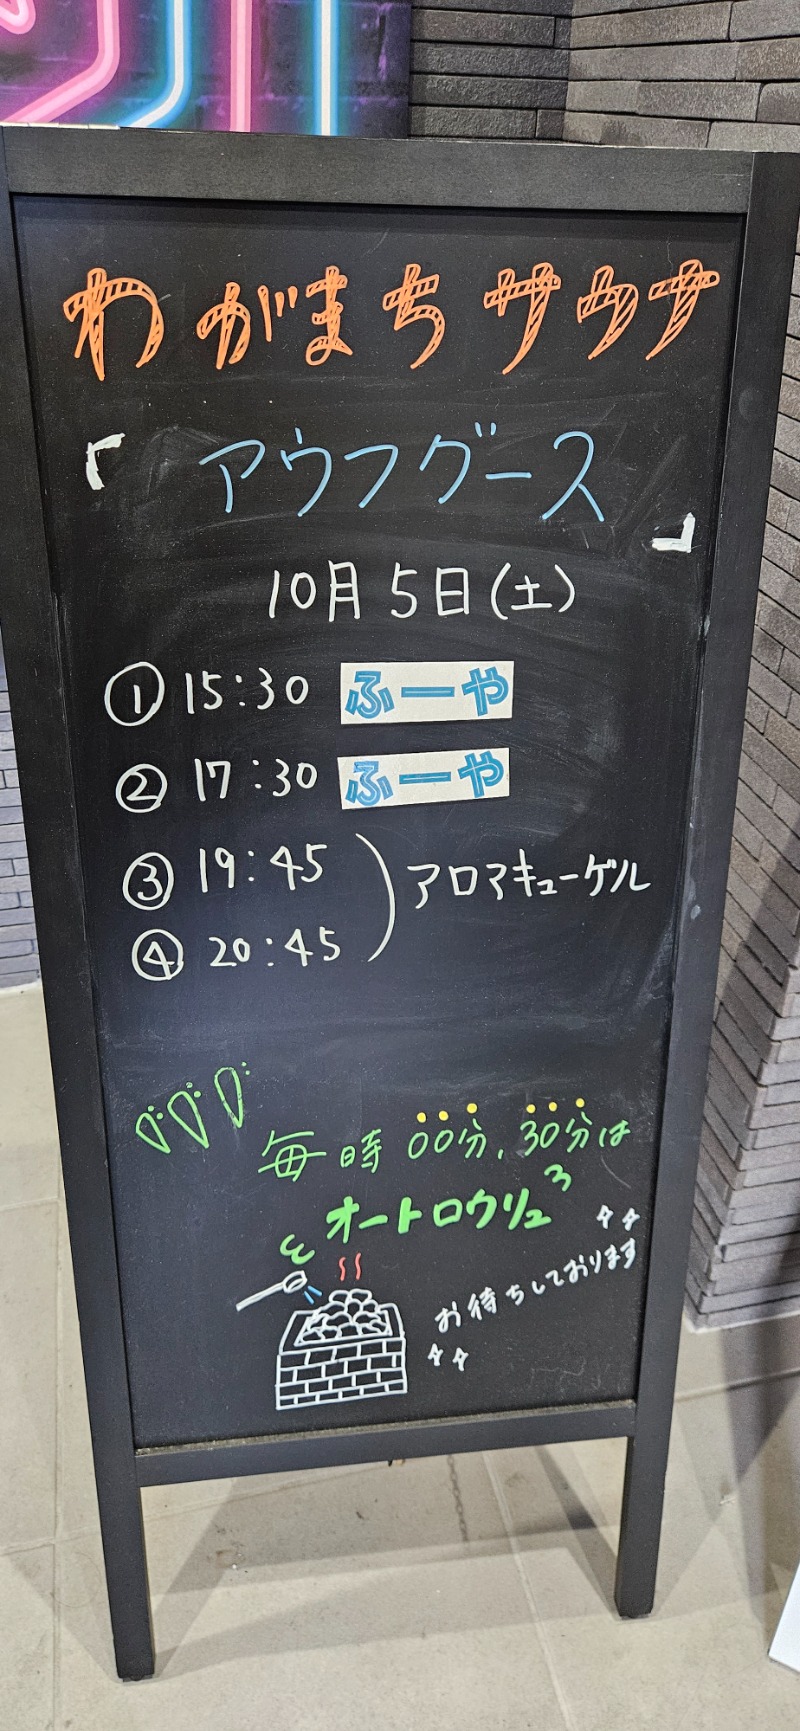 わがまちサウナ
「アウフグース」
10月5日(土)
① 15:30 ふーや
② 17:30 ふーや
③ 19:45
④ 20:45 ) アロマキューゲル
毎時00分、30分は
オートロウリュ
お待ちしております